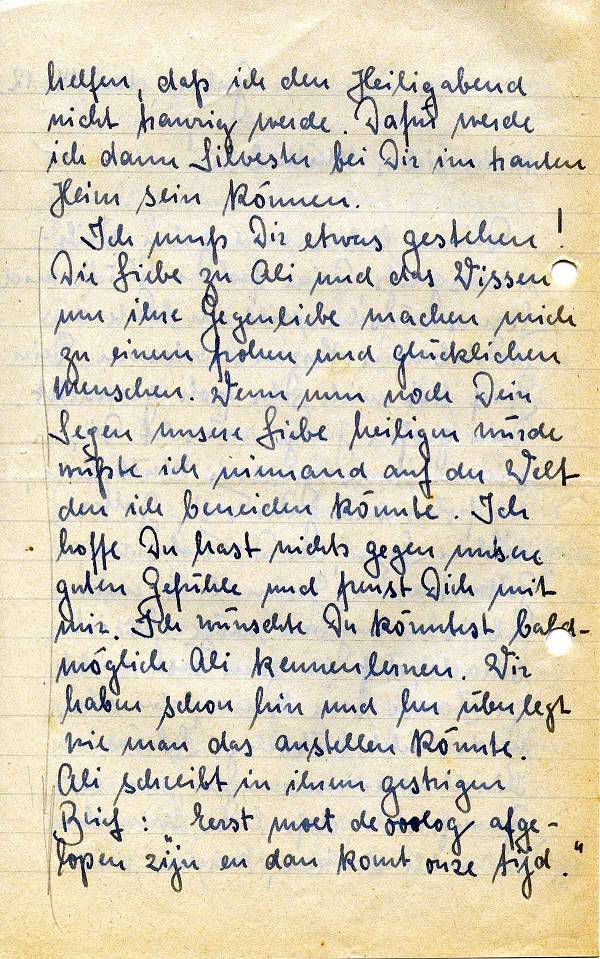 helfen, daß ich den Heiligabend
nicht traurig werde. Dafür werde
ich dann Silvester bei Dir im trauten
Heim sein können.
Ich muß Dir etwas gestehen!
Die Liebe zu Ali und das Wissen
um ihre Gegenliebe machen mich
zu einem frohen und glücklichen
Menschen. Wenn nun noch Dein
Segen unsere Liebe heiligen würde
wüßte ich niemand auf der Welt
den ich beneiden könnte. Ich
hoffe Du hast nichts gegen unsere
guten Gefühle und freust Dich mit
mir. Ich wünschte Du könntest bald-
möglich Ali kennenlernen. Wir
haben schon hin und her überlegt
wie man das anstellen könnte.
Ali schreibt in ihrem gestrigen
Brief: "Eerst moet de oorlog afge-
lopen zijn en dan komt onze tijd."